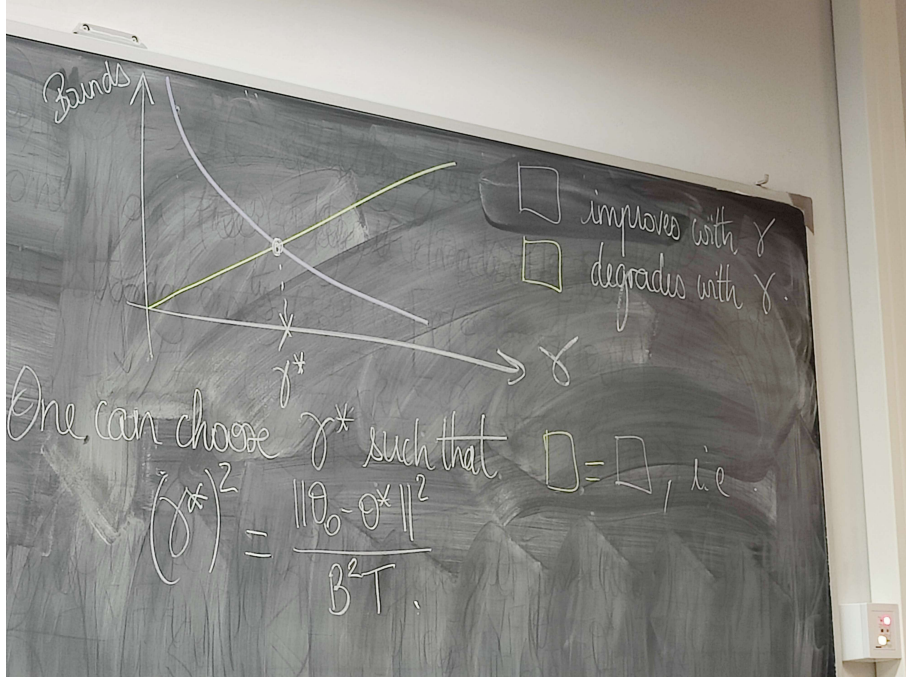 Bounds
□ improves with γ
□ degrades with γ.
γ
γ*
One can choose γ* such that □ = □, i.e.
(γ*)² = ||θ₀ - θ*||² / B²T.